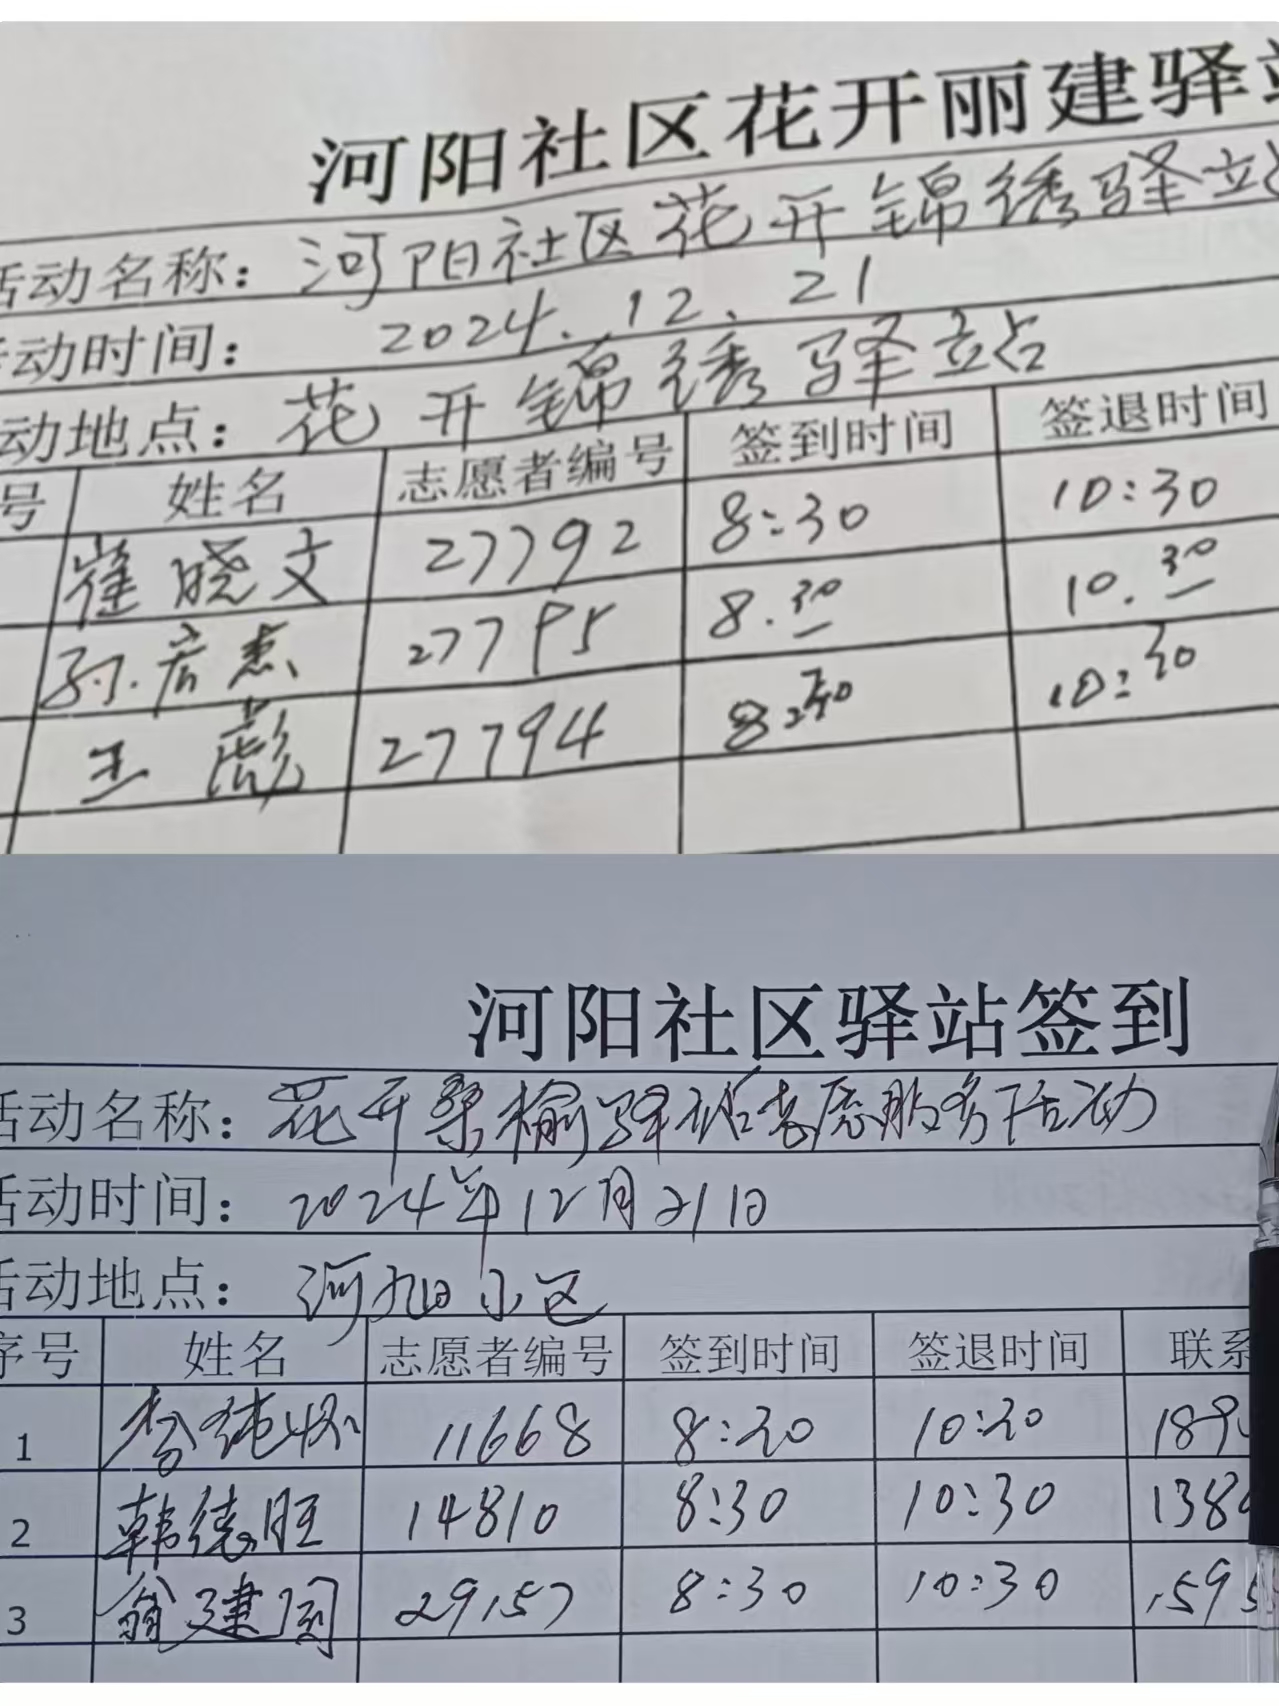 河阳社区花开丽建驿站
活动名称：河阳社区花开锦绣驿站
活动时间：2024.12.21
动地点：花开锦绣驿站
号 姓名 志愿者编号 签到时间 签退时间
崔晓文 27792 8:30 10:30
孙 27795 8.30 10.30
王彪 27794 8:30 10:30
河阳社区驿站签到
活动名称：花开桑榆驿站志愿服务活动
活动时间：2024年12月21日
活动地点：河阳小区
序号 姓名 志愿者编号 签到时间 签退时间 联系
1 11668 8:30 10:30 189
2 韩德旺 14810 8:30 10:30 138
3 翁建国 29157 8:30 10:30 1595